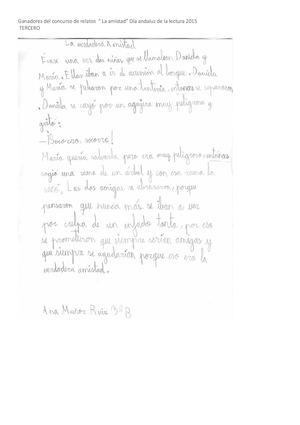 Ganadores del concurso de relatos " La amistad" Día andaluz de la lectura 2015
TERCERO
La verdadera Amistad
Érase una vez dos niñas que se llamaban Daniela y
María. Ellas iban a ir de excursión al bosque. Daniela
y María se pelearon por una tontería, entonces se separaron
. Daniela se cayó por un agujero muy peligroso y
gritó:
—¡Socorro, socorro!
María quería salvarla pero era muy peligroso, entonces
cogió una rama de un árbol y con esa rama la
sacó. Las dos amigas se abrazaron, porque
pensaron que nunca más se iban a ver
por culpa de un enfado tonto, por eso
se prometieron que siempre serían amigas y
que siempre se ayudarían porque eso era la
verdadera amistad.
Ana Muñoz Ruiz 3ºB